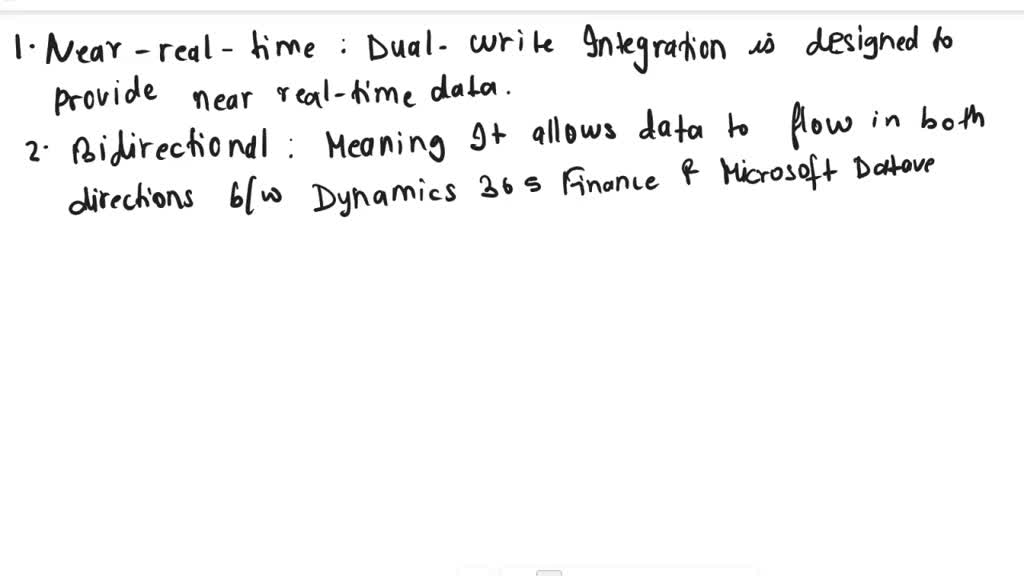 1. Near-real-time : Dual-write Integration is designed to
provide near real-time data.
2. Bidirectional : Meaning It allows data to flow in both
directions b/w Dynamics 365 Finance & Microsoft Datave